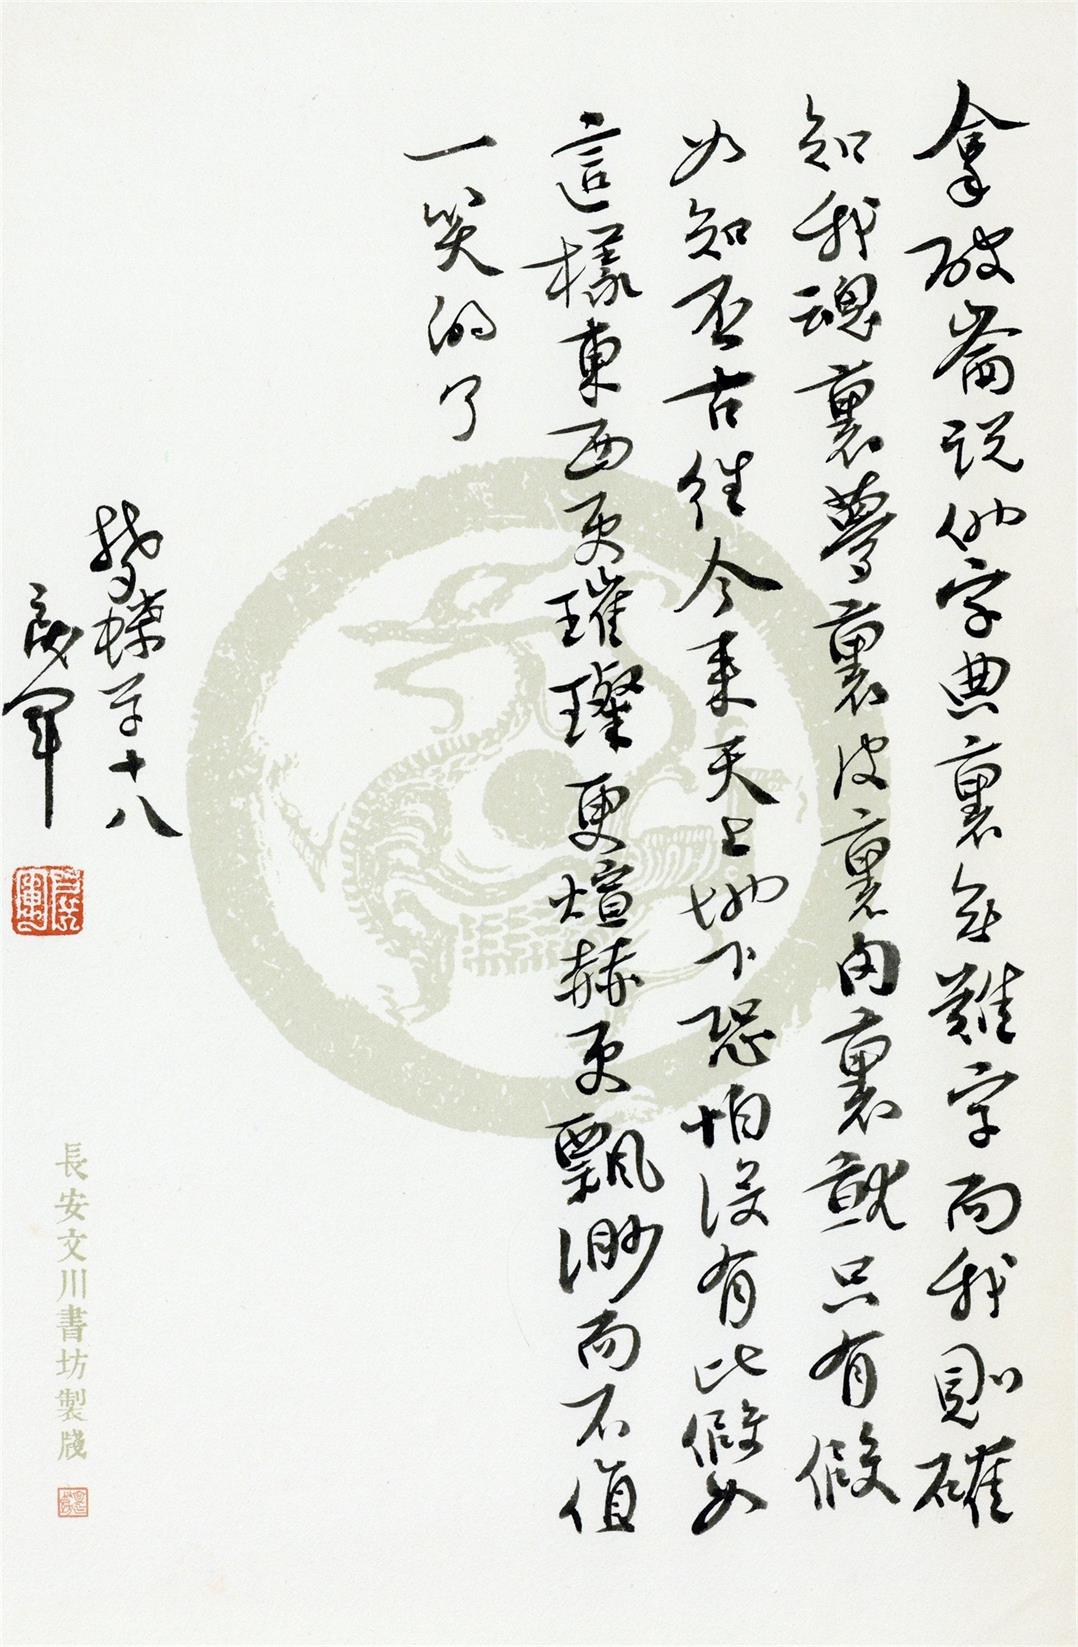 拿破崙説他字典裏無難字而我則確
知我魂裏夢裏皮裏肉裏就只有假
如知否古往今來天上地下恐怕没有比假如
這樣東西更璀璨更煊赫更飄渺而不值
一笑的了
梦蝶草十八
長安文川書坊製牋